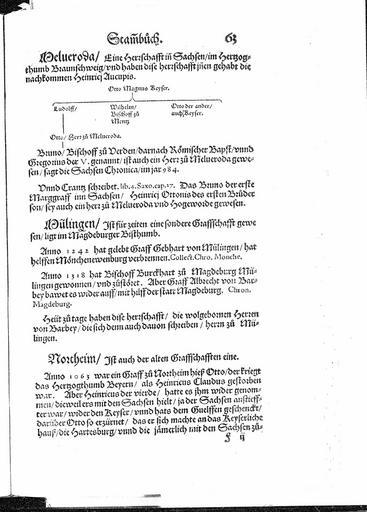 Stam̃bůch. 63
Melueroda/ Eine Herrschafft in Sachsen/im Hertzog-
thumb Braunschweig/vnd haben dise herrschafft jñen gehabt die
nachkommen Heinrici Aucupis.
Otto Magnus Keyser.
Ludolff/ Wilhelm/ Otto der ander/
Bischoff zů auch Keyser.
Mentz
Otto/Herr zů Melueroda.
Bruno/Bischoff zů Verden/darnach Römischer Bapst/vnnd
Gregorius der V. genannt/ist auch ein Herr zů Melueroda gewe-
sen/sagt die Sachsen Chronica/im jar 984.
Vnnd Crantz schreibet. lib.4.Saxo.cap.27. Das Bruno der erste
Marggraff inn Sachsen/ Heinrici Ottonis des ersten Brüder
son/sey auch ein herr zů Melueroda vnd Hogeworde gewesen.
Mülingen/ Ist für zeiten eine sondere Graffschafft gewe
sen/ligt im Magdeburger Bisthumb.
Anno 1242 hat gelebt Graff Gebhart von Mülingen/hat
helffen Mönchenewenburg verbrennen. Collect. Chro. Monche.
Anno 1318 hat Bischoff Burckhart zů Magdeburg Mü-
lingen gewonnen/vnd zůstöret. Aber Graff Albrecht von Bar-
bey bawet es wider auff/mit hilff der statt Magdeburg. Chron.
Magdeburg.
Heüt zů tage haben dise herrschafft/ die wolgebornen Herren
von Barbey/die sich denn auch dauon schreiben/ herrn zů Mü-
lingen.
Northeim/ Ist auch der alten Graffschafften eine.
Anno 1063 war ein Graff zů Northeim hieß Otto/der kriegt
das Hertzogthumb Beyern/ als Heinricus Claudus gestorben
war. Aber Heinricus der vierde/ hatte es jhm wider genom-
men/dieweil ers mit den Sachsen hielt/ja der Sachsen anstieff-
ter war/wider den Keyser/vnnd hats dem Guelffen geschenckt/
darüber Otto so erzürnet/ das er sich machte an das Keyserliche
hauß/die Hartesburg/vnnd die jämerlich mit den Sachsen zů-
f ij